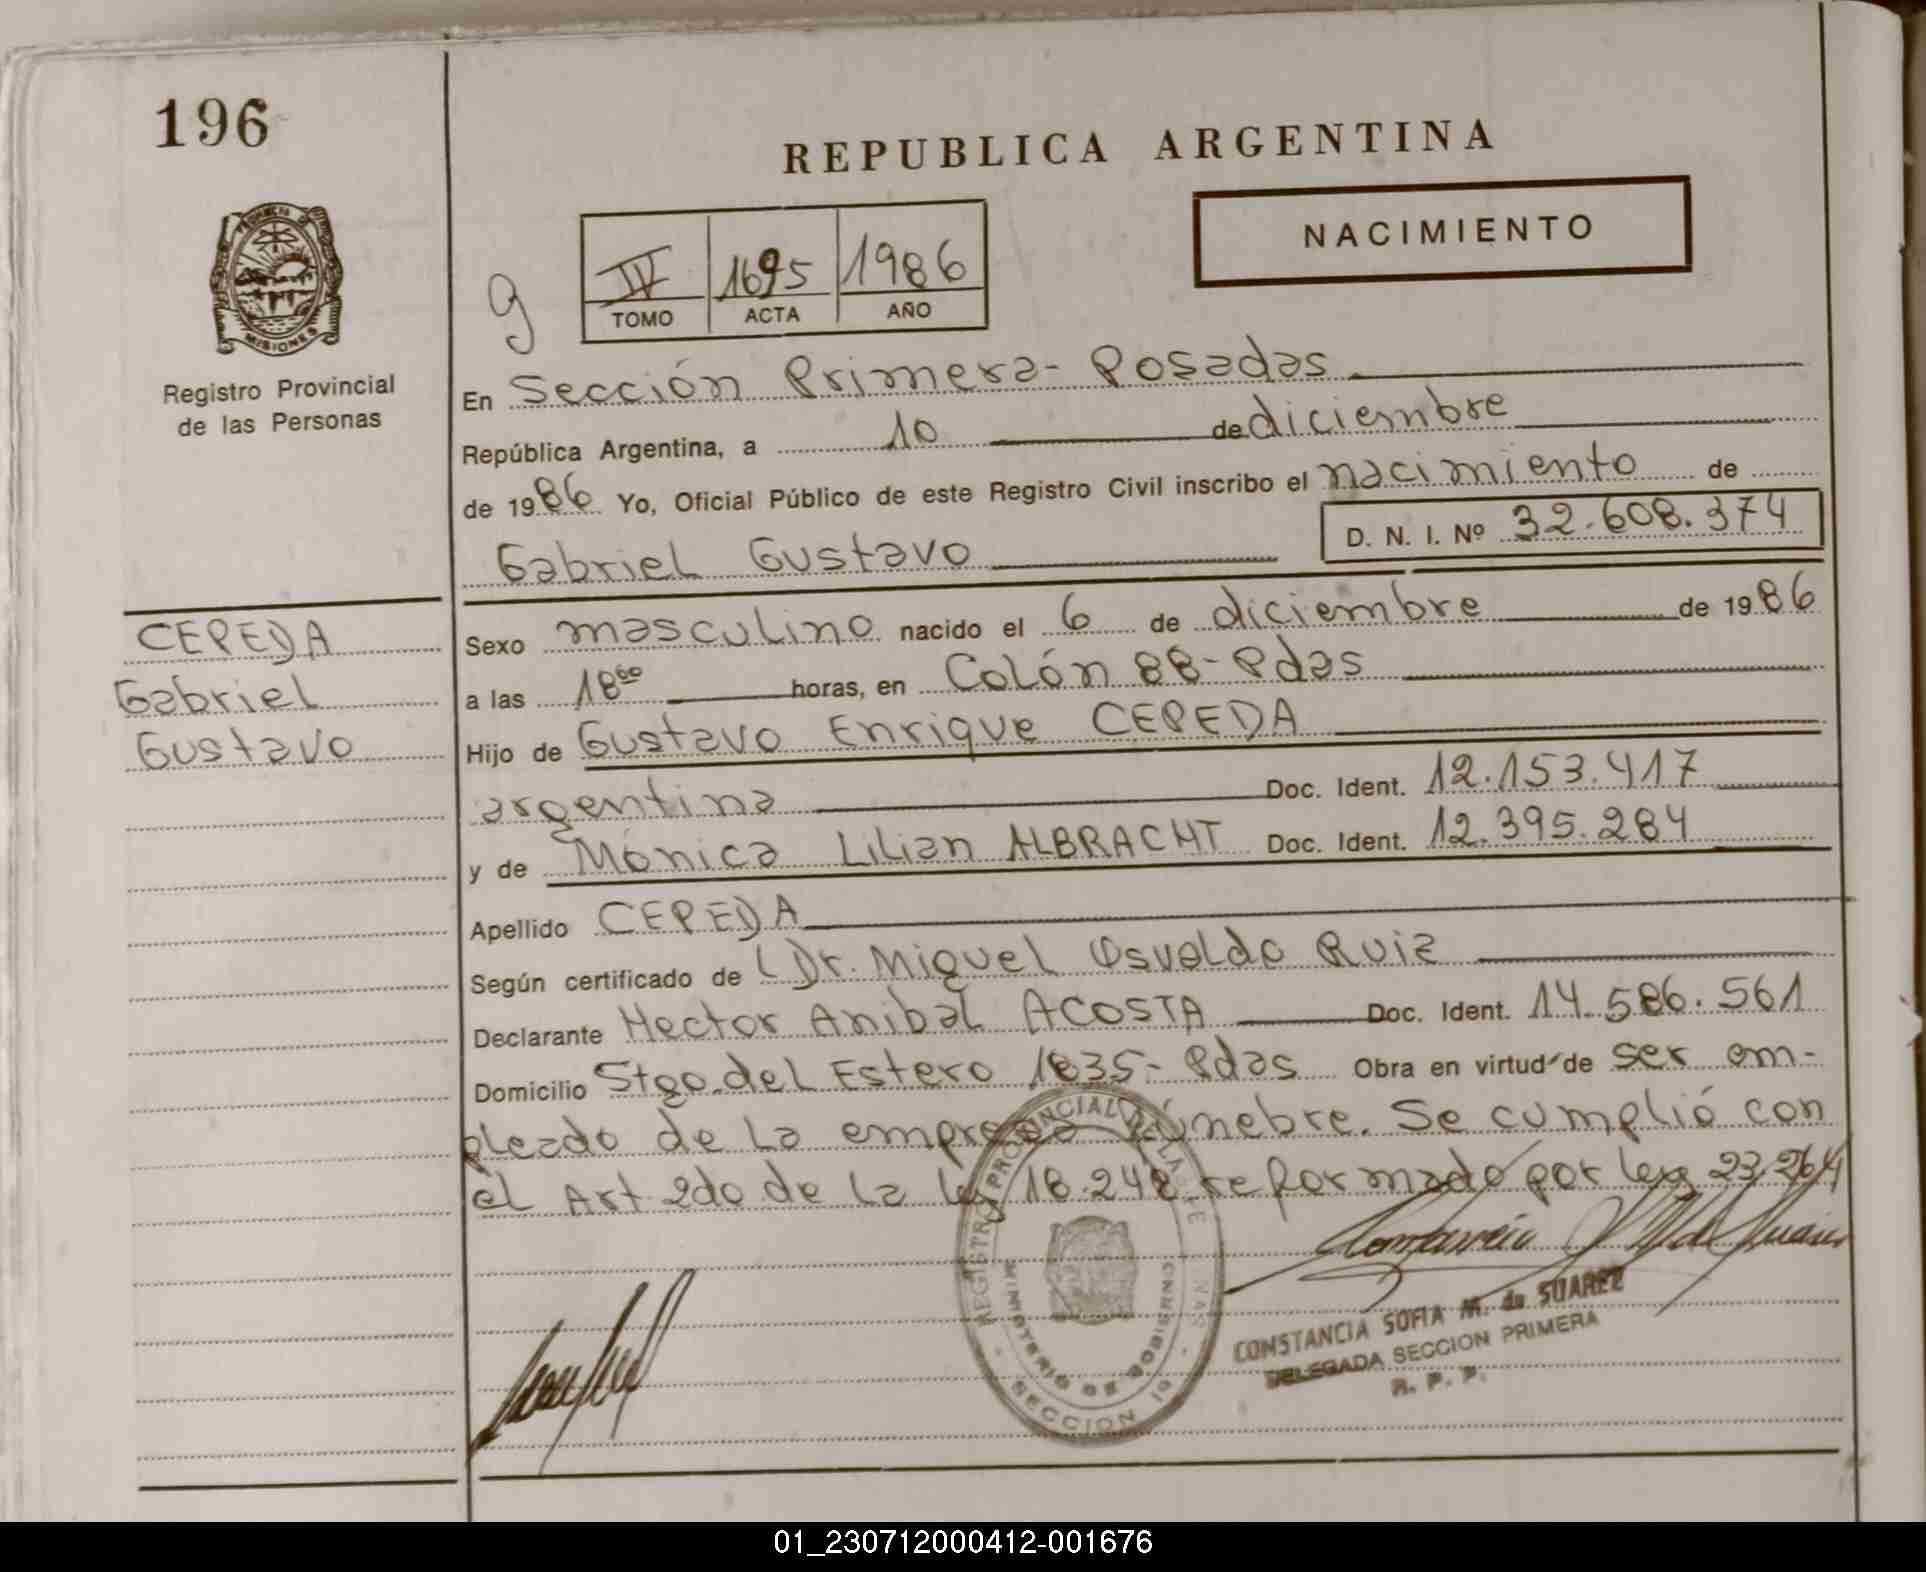 196
REPUBLICA ARGENTINA
NACIMIENTO
g
IV 1695 1986
TOMO ACTA AÑO
Registro Provincial
de las Personas
MISIONES
En Sección Primera - Posadas
República Argentina, a 10 de diciembre
de 1986 Yo, Oficial Público de este Registro Civil inscribo el nacimiento de
D. N. I. Nº 32.608.374
Gabriel Gustavo
CEPEDA
Gabriel
Gustavo
Sexo masculino nacido el 6 de diciembre de 1986
a las 18 horas, en Colón 88 - Pdas
Hijo de Gustavo Enrique CEPEDA
argentina Doc. Ident. 12.153.417
y de Mónica Lilian ALBRACHT Doc. Ident. 12.395.284
Apellido CEPEDA
Según certificado de Dr. Miguel Osvaldo Ruiz
Declarante Hector Anibal ACOSTA Doc. Ident. 14.586.561
Domicilio Stgo. del Estero 1835 - Pdas Obra en virtud de ser em-
pleado de la empresa fúnebre. Se cumplió con
el Art 2do de la ley 18.248 reformado por ley 23.264
REGISTRO PROVINCIAL DE LAS
MINISTERIO DE GOBIERNO
SECCION 1a
CONSTANCIA SOFIA M. de SUAREZ
DELEGADA SECCION PRIMERA
R. P. P.
01_230712000412-001676